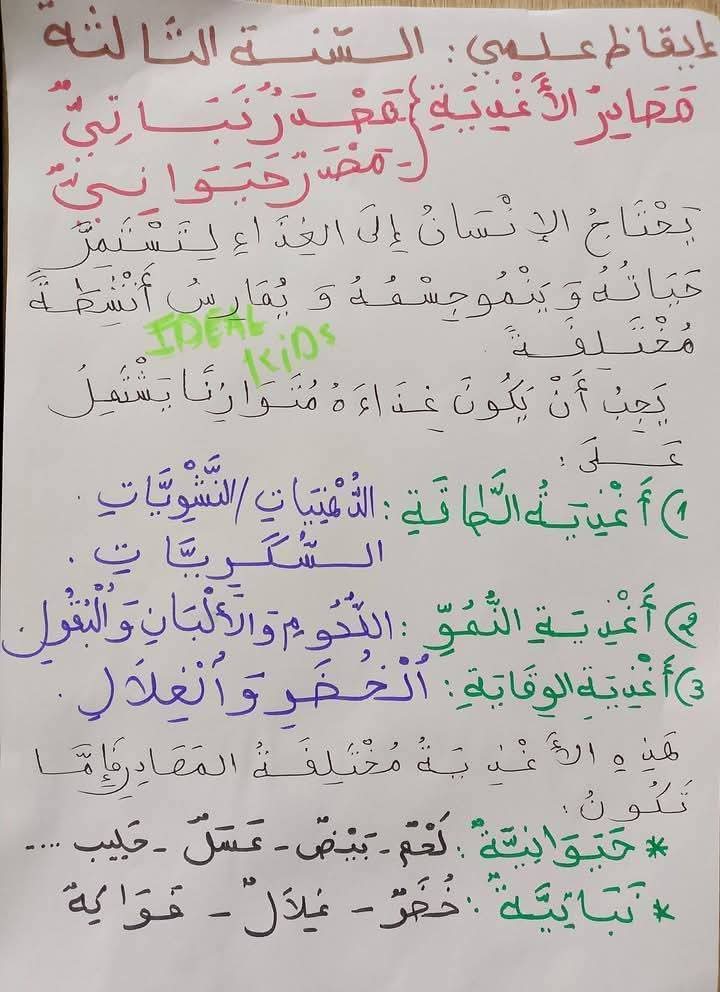 إيقاظ علمي: السّنة الثالثة
مَصَادِرُ الأَغْذِيَةِ { مَصْدَرٌ نَبَاتِيٌّ
- مَصْدَرٌ حَيَوَانِيٌّ
يَحْتَاجُ الإِنْسَانُ إِلَى الغِذَاءِ لِتَسْتَمِرَّ
حَيَاتُهُ وَ يَنْمُو جِسْمُهُ وَ يُمَارِسُ أَنْشِطَةً
مُخْتَلِفَةً
IDEAL
KiDS
يَجِبُ أَنْ يَكُونَ غِذَاءَهُ مُتَوَازِنًا يَشْتَمِلُ
عَلَى :
1) أَغْذِيَةُ الطَّاقَةِ : الدُّهْنِيَاتِ / النَّشَوِيَّاتِ .
السُّكَرِيَّاتِ .
2) أَغْذِيَةِ النُّمُوِّ : اللُّحُومِ وَالأَلْبَانِ وَالْبُقُولِ
3) أَغْذِيَةِ الوِقَايَةِ : الْخُضَرِ وَ الْغِلاَلِ .
هَذِهِ الأَغْذِيَةُ مُخْتَلِفَةُ المَصَادِرِ فَإِمَّا
تَكُونُ :
* حَيَوَانِيَّةٌ : لَحْمٌ - بَيْضٌ - عَسَلٌ - حَلِيب - ....
* نَبَاتِيَّةٌ : خُضَرٌ - غِلاَلٌ - فَوَاكِهٌ